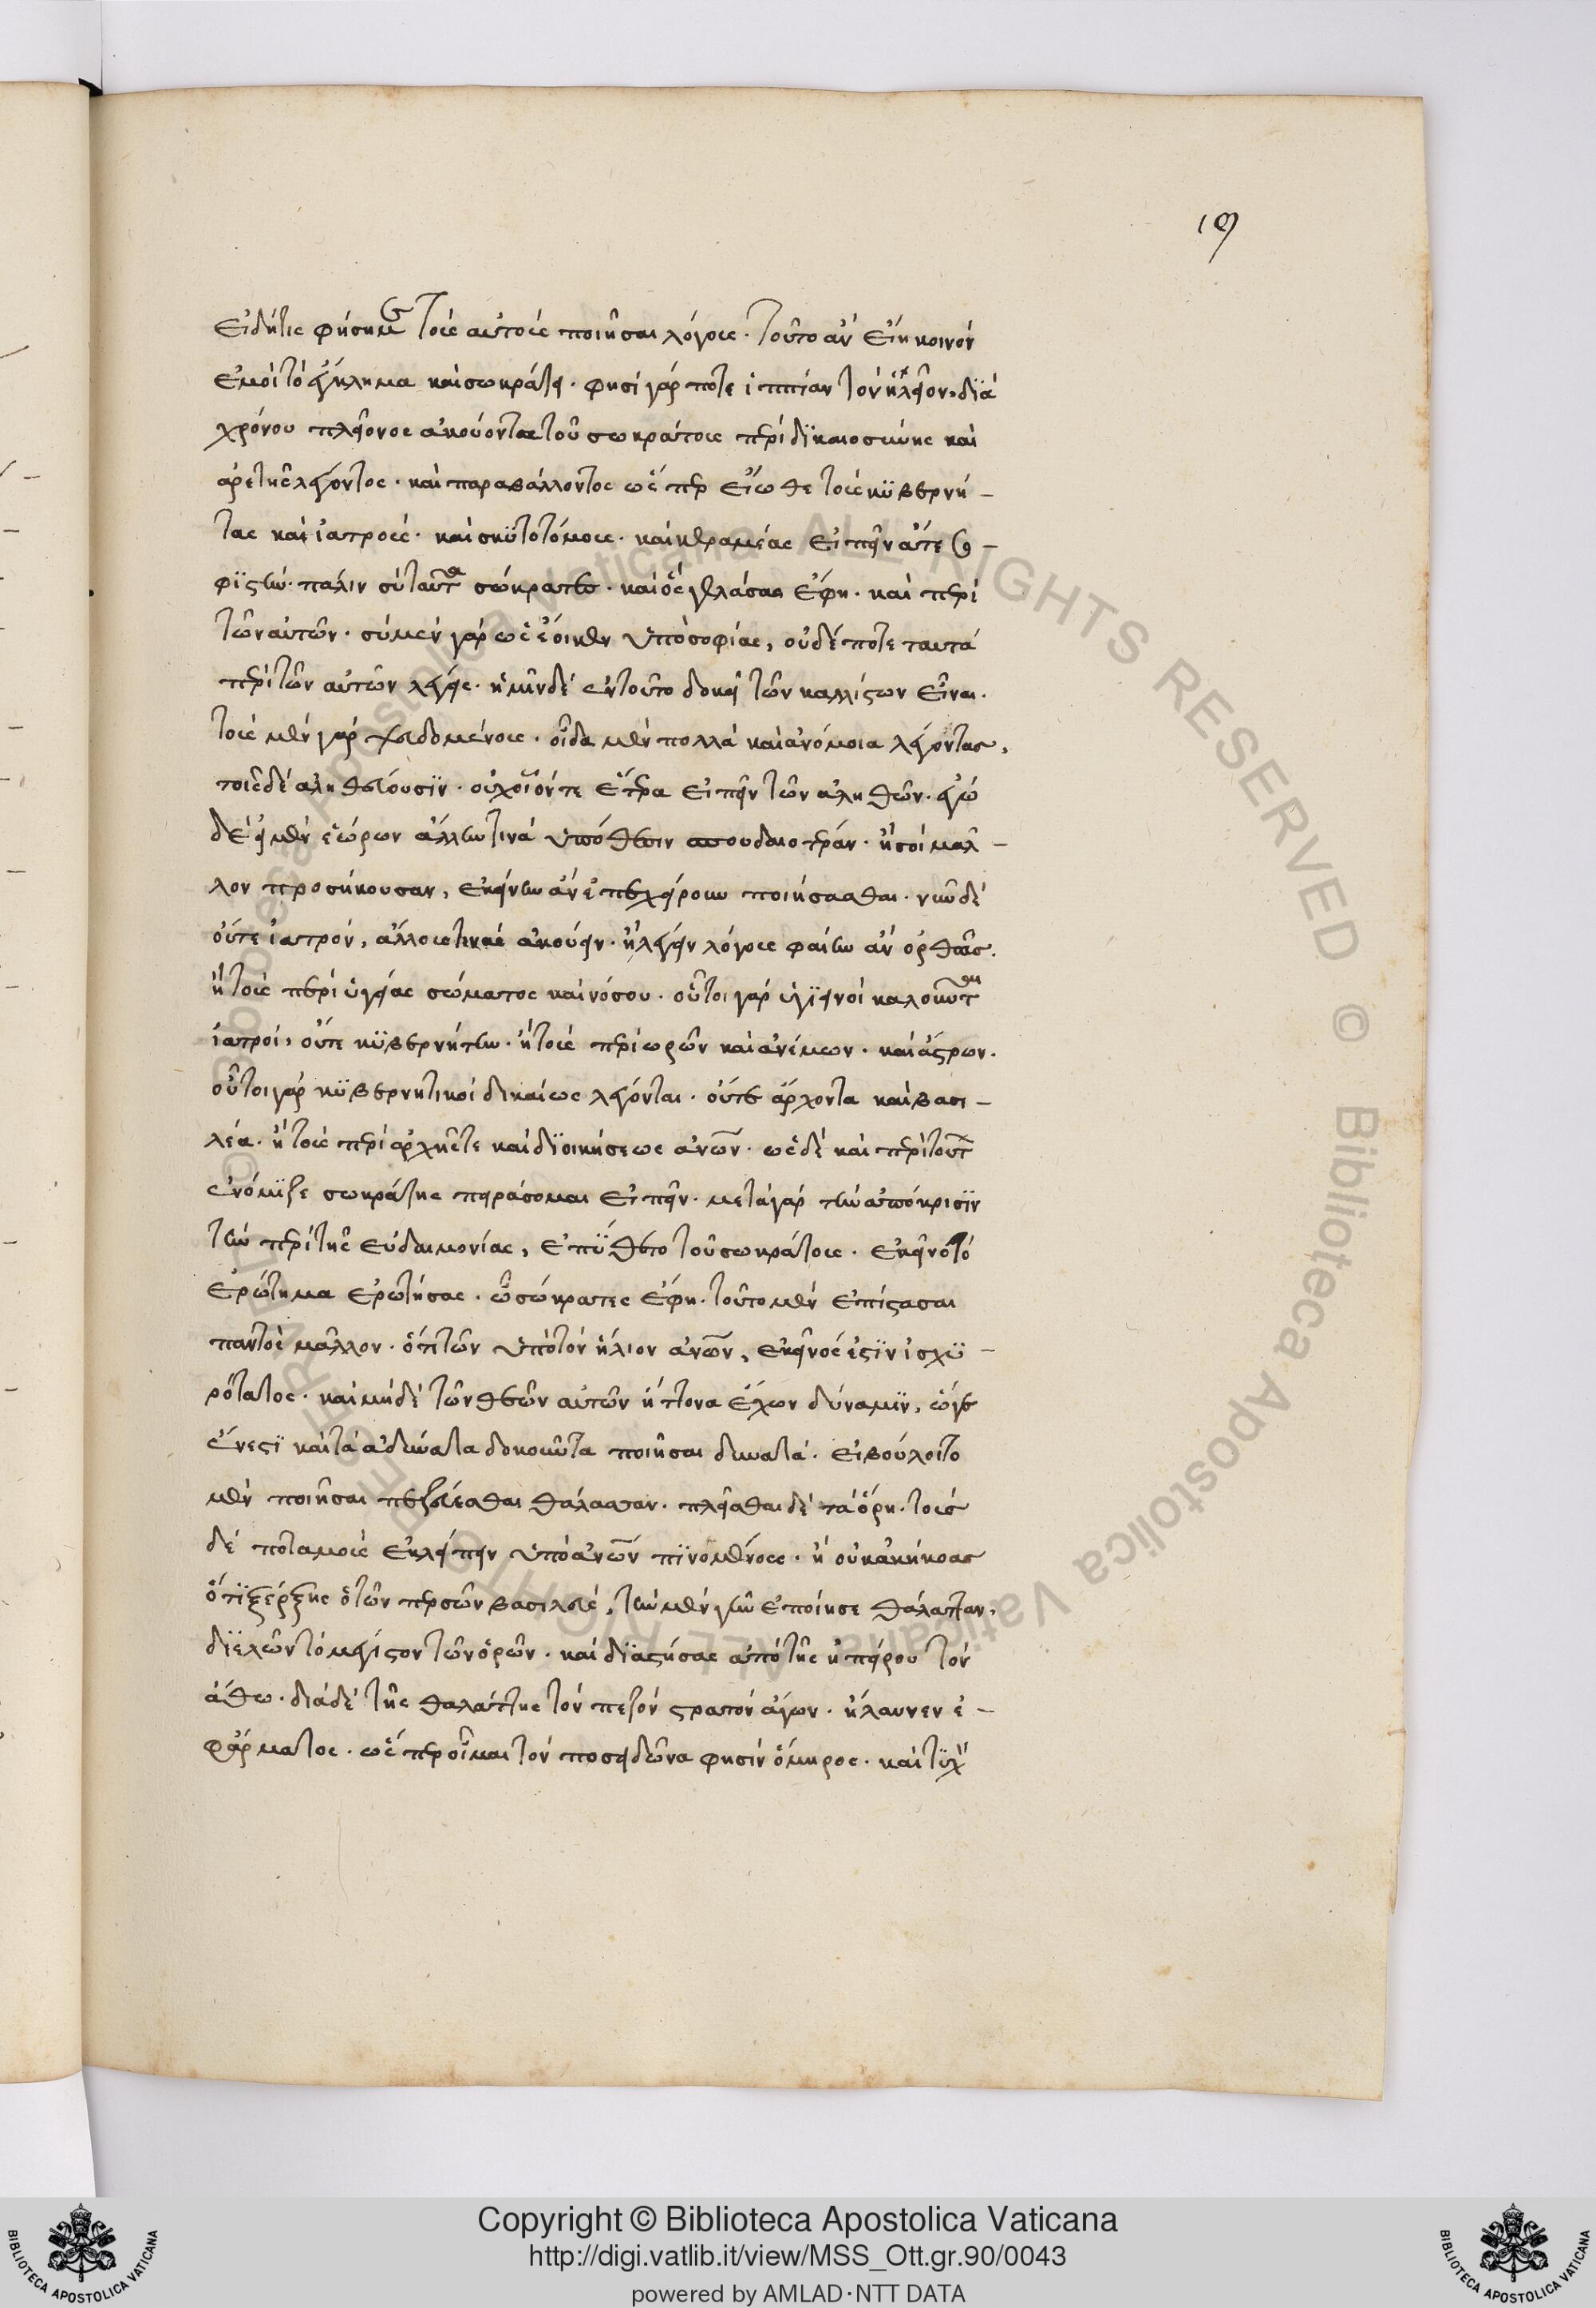 19
εἰ δή τις φήσῃ με τοὺς αὐτοὺς ποιῆσαι λόγους. τοῦτο ἂν εἴη κοινὸν
ἐμοί τὸ ἔγκλημα καὶ σωκράτει. φησὶ γάρ ποτε ἱππίαν τὸν ἠλεῖον, διὰ
χρόνου πλείονος ἀκούοντα τοῦ σωκράτους περὶ δικαιοσύνης καὶ
ἀρετῆς λέγοντος. καὶ παραβάλλοντος ὥσπερ εἴωθε τοὺς κυβερνή-
τας καὶ ἰατρούς. καὶ σκυτοτόμους. καὶ κεραμέας εἰπεῖν ἅτε σο-
φιστήν. πάλιν σὺ ταῦτα σώκρατες. καὶ ὃς γελάσας ἔφη. καὶ περὶ
τῶν αὐτῶν. σὺ μὲν γὰρ ὡς ἔοικεν ὑπὸ σοφίας, οὐδέποτε ταυτὰ
περὶ τῶν αὐτῶν λέγεις. ἡμῖν δὲ ἓν τοῦτο δοκεῖ τῶν καλλίστων εἶναι.
τοὺς μὲν γὰρ ψευδομένους. οἶδα μὲν πολλὰ καὶ ἀνόμοια λέγοντας,
τοῖς δὲ ἀληθεύουσιν. οὐχ οἷόν τε ἕτερα εἰπεῖν τῶν ἀληθῶν. ἐγὼ
δὲ εἰ μὲν ἑώρων ἄλλην τινὰ ὑπόθεσιν σπουδαιοτέραν. ἤ σοι μᾶλ-
λον προσήκουσαν, ἐκείνην ἂν ἐπεχείρουν ποιήσασθαι. νῦν δὲ
οὔτε ἰατρόν, ἄλλους τινὰς ἀκούειν. ἢ λέγειν λόγους φαίην ἂν ὀρθῶς.
ἢ τοὺς περὶ ὑγείας σώματος καὶ νόσου. οὗτοι γὰρ ὑγιεινοὶ καλοῦνται
ἰατροί, οὔτε κυβερνήτην. ἢ τοὺς περὶ ὡρῶν καὶ ἀνέμων. καὶ ἄστρων.
οὗτοι γὰρ κυβερνητικοὶ δικαίως λέγονται. οὔτε ἄρχοντα καὶ βασι-
λέα. ἢ τοὺς περὶ ἀρχῆς τε καὶ διοικήσεως ἀνων. ὡς δὲ καὶ περὶ τούτων
ἐνόμιζε σωκράτης πειράσομαι εἰπεῖν. μετὰ γὰρ τὴν ἀπόκρισιν
τὴν περὶ τῆς εὐδαιμονίας, ἐπύθετο τοῦ σωκράτους. ἐκεῖνος τὸ
ἐρώτημα ἐρωτήσας. ὦ σώκρατες ἔφη. τοῦτο μὲν ἐπίστασαι
παντὸς μᾶλλον. ὅτι τῶν ὑπὸ τὸν ἥλιον ἀνων, ἐκεῖνός ἐστιν ἰσχυ-
ρότατος. καὶ μηδὲ τῶν θεῶν αὐτῶν ἥττονα ἔχων δύναμιν, ᾧ γε
ἔνεστι καὶ τὰ ἀδύνατα δοκοῦντα ποιῆσαι δυνατά. εἰ βούλοιτο
μὲν ποιῆσαι πεζεύεσθαι θάλασσαν. πλεῖσθαι δὲ τὰ ὄρη. τοὺς
δὲ ποταμοὺς ἐκλείπειν ὑπὸ ἀνων πινομένους. ἢ οὐκ ἀκήκοας
ὅτι ξέρξης ὁ τῶν περσῶν βασιλεύς, τὴν μὲν γῆν ἐποίησε θάλατταν,
διελὼν τὸ μέγιστον τῶν ὀρῶν. καὶ διαστήσας ἀπὸ τῆς ἠπείρου τὸν
ἄθω. διὰ δὲ τῆς θαλάττης τὸν πεζὸν στρατὸν ἄγων. ἤλαυνεν ἐ-
φ' ἅρματος. ὥσπερ οἶμαι τὸν ποσειδῶνα φησὶν ὅμηρος. καὶ τυχὸν
Copyright © Biblioteca Apostolica Vaticana
http://digi.vatlib.it/view/MSS_Ott.gr.90/0043
powered by AMLAD·NTT DATA
BIBLIOTECA APOSTOLICA VATICANA
BIBLIOTECA APOSTOLICA VATICANA
© Biblioteca Apostolica Vaticana ALL RIGHTS RESERVED © Biblioteca Apostolica Vaticana ALL RIGHTS RESERVED